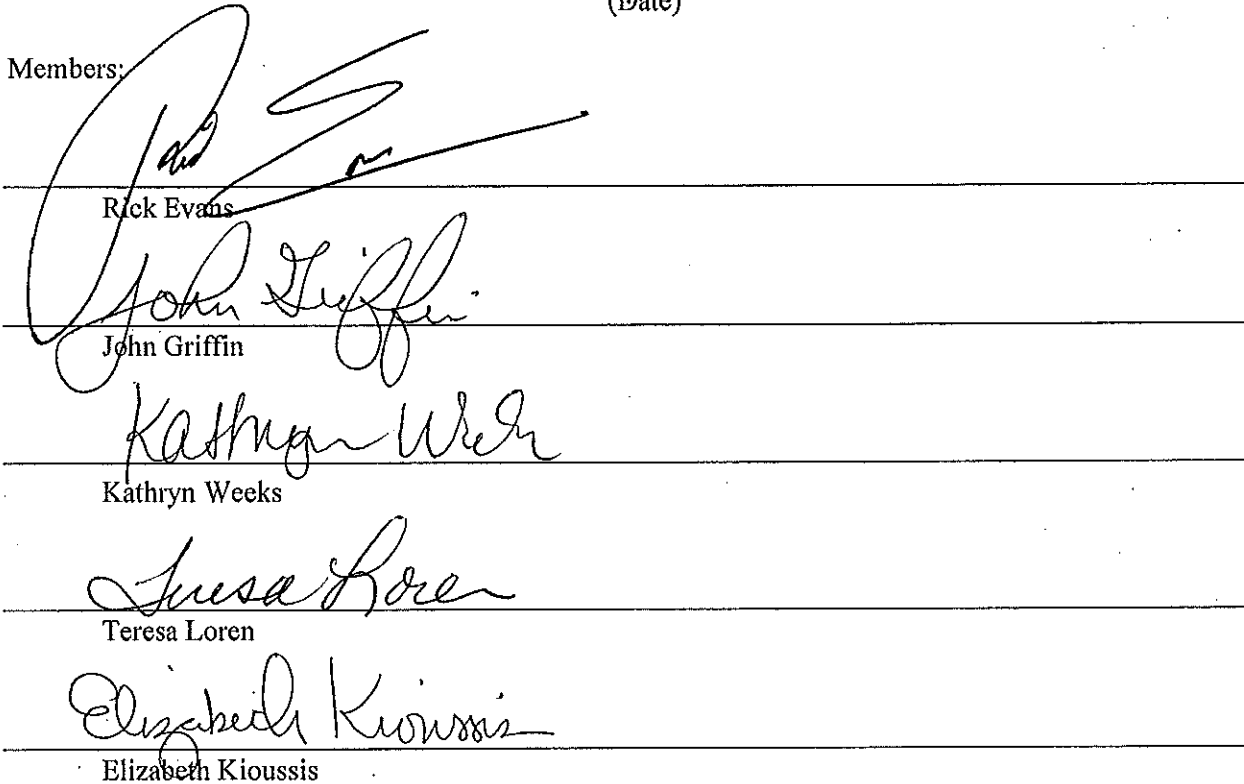 (Date)
Members:
Rick Evans
John Griffin
John Griffin
Kathryn Weeks
Kathryn Weeks
Teresa Loren
Teresa Loren
Elizabeth Kioussis
Elizabeth Kioussis